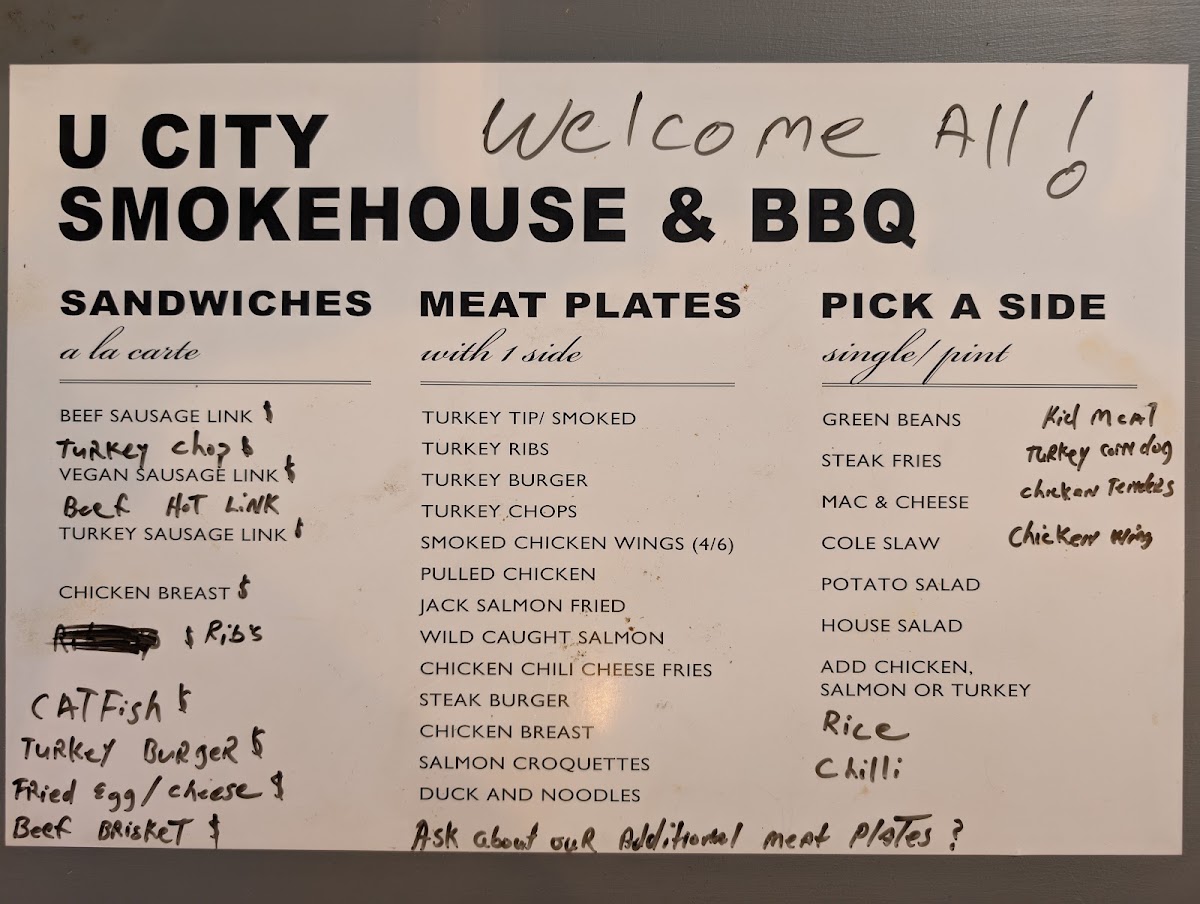 U CITY
Welcome All!
SMOKEHOUSE & BBQ
SANDWICHES
a la carte
BEEF SAUSAGE LINK $
Turkey Chop $
VEGAN SAUSAGE LINK $
Beef HOT LINK
TURKEY SAUSAGE LINK $
CHICKEN BREAST $
$ Rib's
CATFish $
Turkey Burger $
Fried Egg/cheese $
Beef BRisKET $
MEAT PLATES
with 1 side
TURKEY TIP/ SMOKED
TURKEY RIBS
TURKEY BURGER
TURKEY CHOPS
SMOKED CHICKEN WINGS (4/6)
PULLED CHICKEN
JACK SALMON FRIED
WILD CAUGHT SALMON
CHICKEN CHILI CHEESE FRIES
STEAK BURGER
CHICKEN BREAST
SALMON CROQUETTES
DUCK AND NOODLES
Ask about our Additional meat Plates?
PICK A SIDE
single/ pint
GREEN BEANS
STEAK FRIES
MAC & CHEESE
COLE SLAW
POTATO SALAD
HOUSE SALAD
ADD CHICKEN,
SALMON OR TURKEY
Rice
Chilli
Kid meAT
Turkey corn dog
chicken
Chicken wing